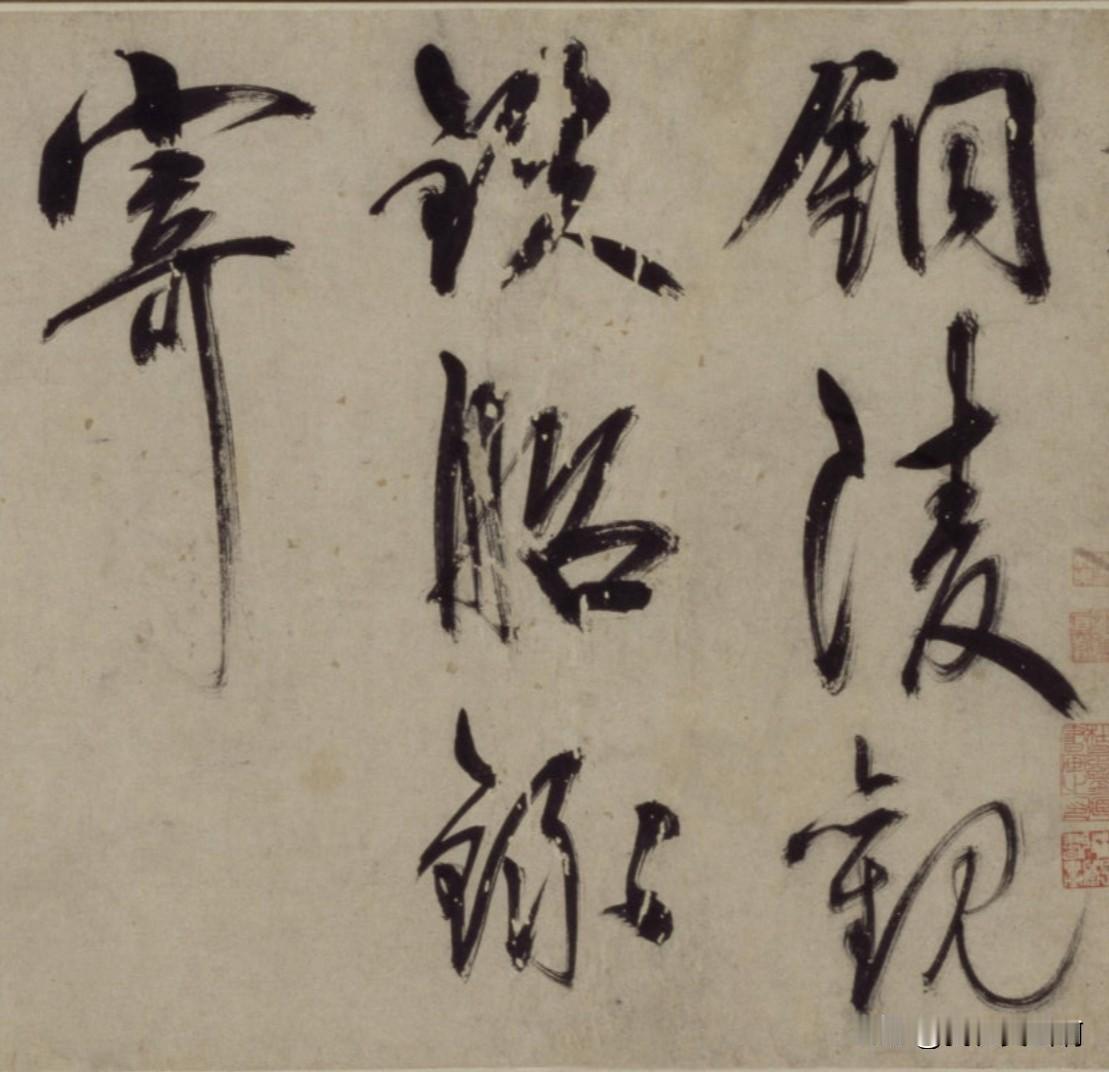 銅陵觀
鐵船錄
寄